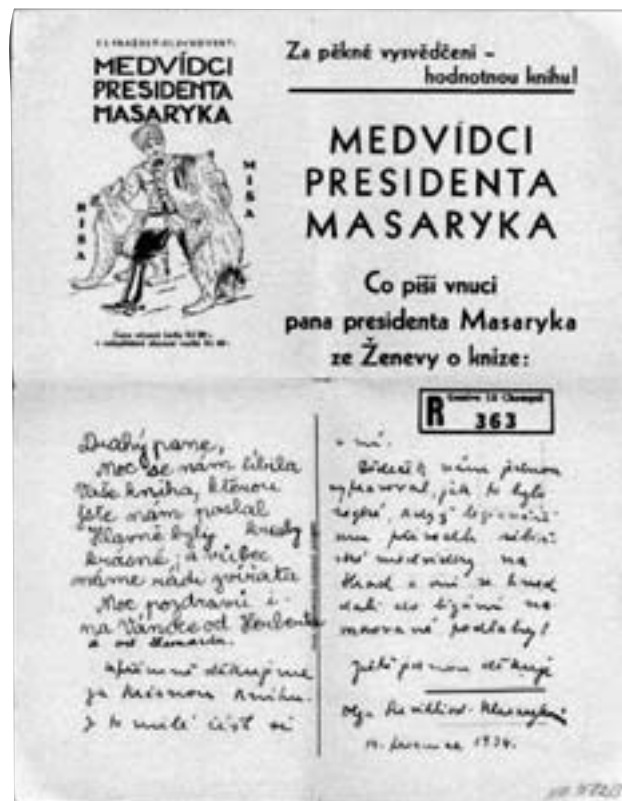 MEDVÍDCI
PRESIDENTA
MASARYKA
MÍŠA
Za pěkné vysvědčení –
hodnotnou knihu!
MEDVÍDCI
PRESIDENTA
MASARYKA
Co píší vnuci
pana presidenta Masaryka
ze Ženevy o knize:
R 363
Drahý pane,
Moc se nám líbila
Vaše kniha, kterou
jste nám poslal
Hlavně byly kresby
krásné, a vůbec
máme rádi zvířata
Moc pozdravů i
na Vánoce od Herberta
a od
upřímně děkujeme
za krásnou knihu.
J to milé číst si
o ní.
Dědeček nám jednou
vypravoval, jak to bylo
když
na
Hrad a oni se hned
dali do lízání na
podlahy!
Ještě jednou děkuji
Olga
1934.